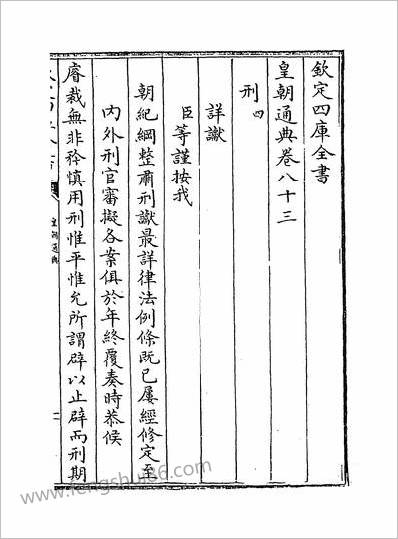 欽定四庫全書
皇朝通典卷八十三
刑四
詳讞
臣等謹按我
朝紀綱整肅刑讞最詳律法例條既已屢經修定至
內外刑官審擬各案俱於年終覆奏時恭候
睿裁無非矜慎用刑惟平惟允所謂辟以止辟而刑期
皇朝通典
www.fengshui86.com